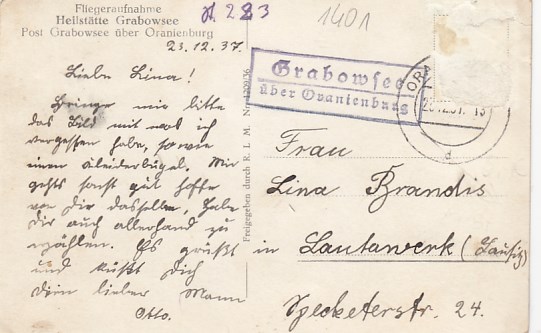 Fliegeraufnahme
Heilstätte Grabowsee
Post Grabowsee über Oranienburg
283
1401
23.12.37.
Liebe Lina!
Bringe mir bitte
das Bild mit was ich
vergessen habe, sowie
einen Kleiderbügel. Mir
gehts sonst gut hoffe
von Dir dasselbe, habe
Dir auch allerhand zu
erzählen. Es grüßt
und küßt Dich
Dein lieber Mann
Otto.
Freigegeben durch R. L. M. Nr.
Grabowsee
über Oranienburg
Frau
Lina Brandis
in Lautawerk (Lausitz)
Specketerstr. 24.